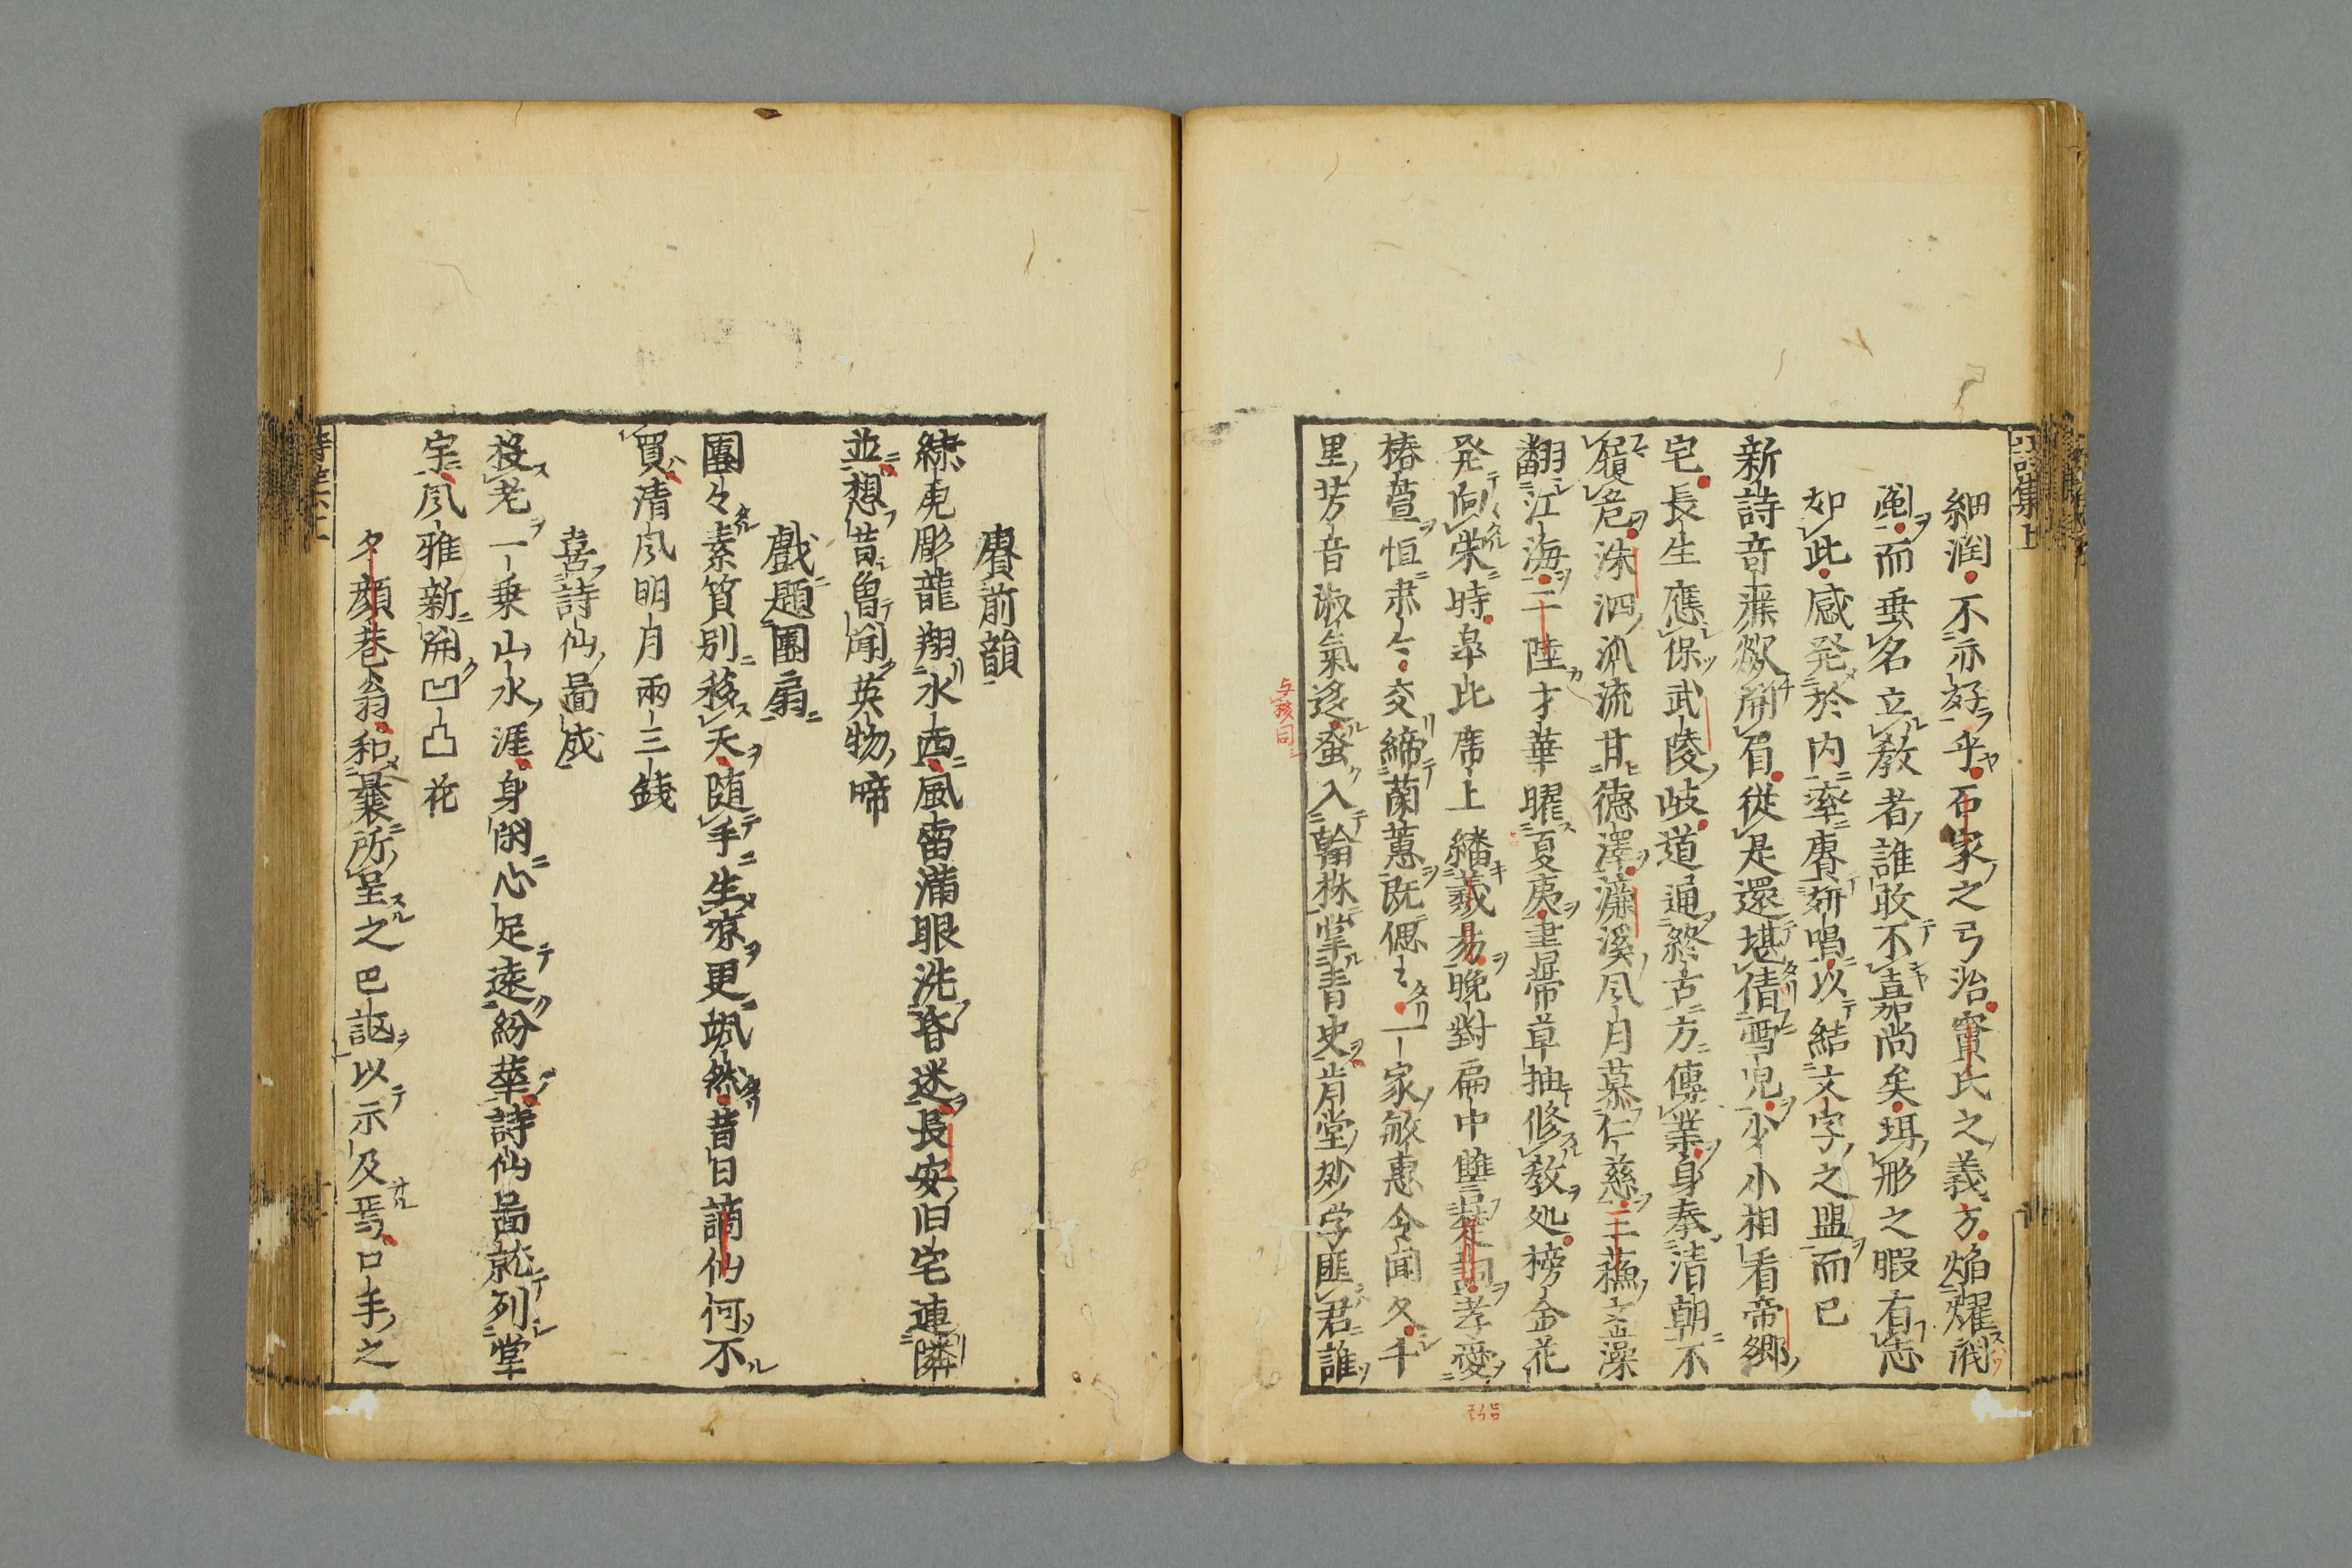 細潤不亦好乎石家之弓治竇氏之義方焔耀閥
閩而垂名立教者誰敢不嘉尚矣珥形之暇有志
如此感発於内率賡妍唱以結文字之盟而已
新詩奇藻欲開眉從是還堪倩雪児少小相看帝郷
宅長生應保武陵岐道通終古方傳業身奉清朝不
履危洙泗汎流甘德澤濂溪風月慕仁慈三蘓文藻
翻江海二陸才華曜夏夷畫帯草抽修教処榜金花
発向栄時皐比席上繙羲易晩對扁中讐楚詞孝愛
椿萱恒肅々交締蘭蕙既偲々一家敏惠令聞久千
里芳音淑氣迻蚤入翰林掌青史肯堂妙学匪君誰
賡前韻
繍虎彫龍翔水西風雷満眼洗昏迷長安旧宅連隣
並想昔曽聞英物啼
戯題團扇
團々素質別移天随手生凉更颯然昔日謫仙何不
買清風明月両三銭
喜詩仙啚成
投老一乗山水涯身閑心足遠紛華詩仙啚就列堂
宇風雅新開凹凸花
夕顔巷翁和曩所呈之巴謳以示及焉口手之
詩集上
与移同